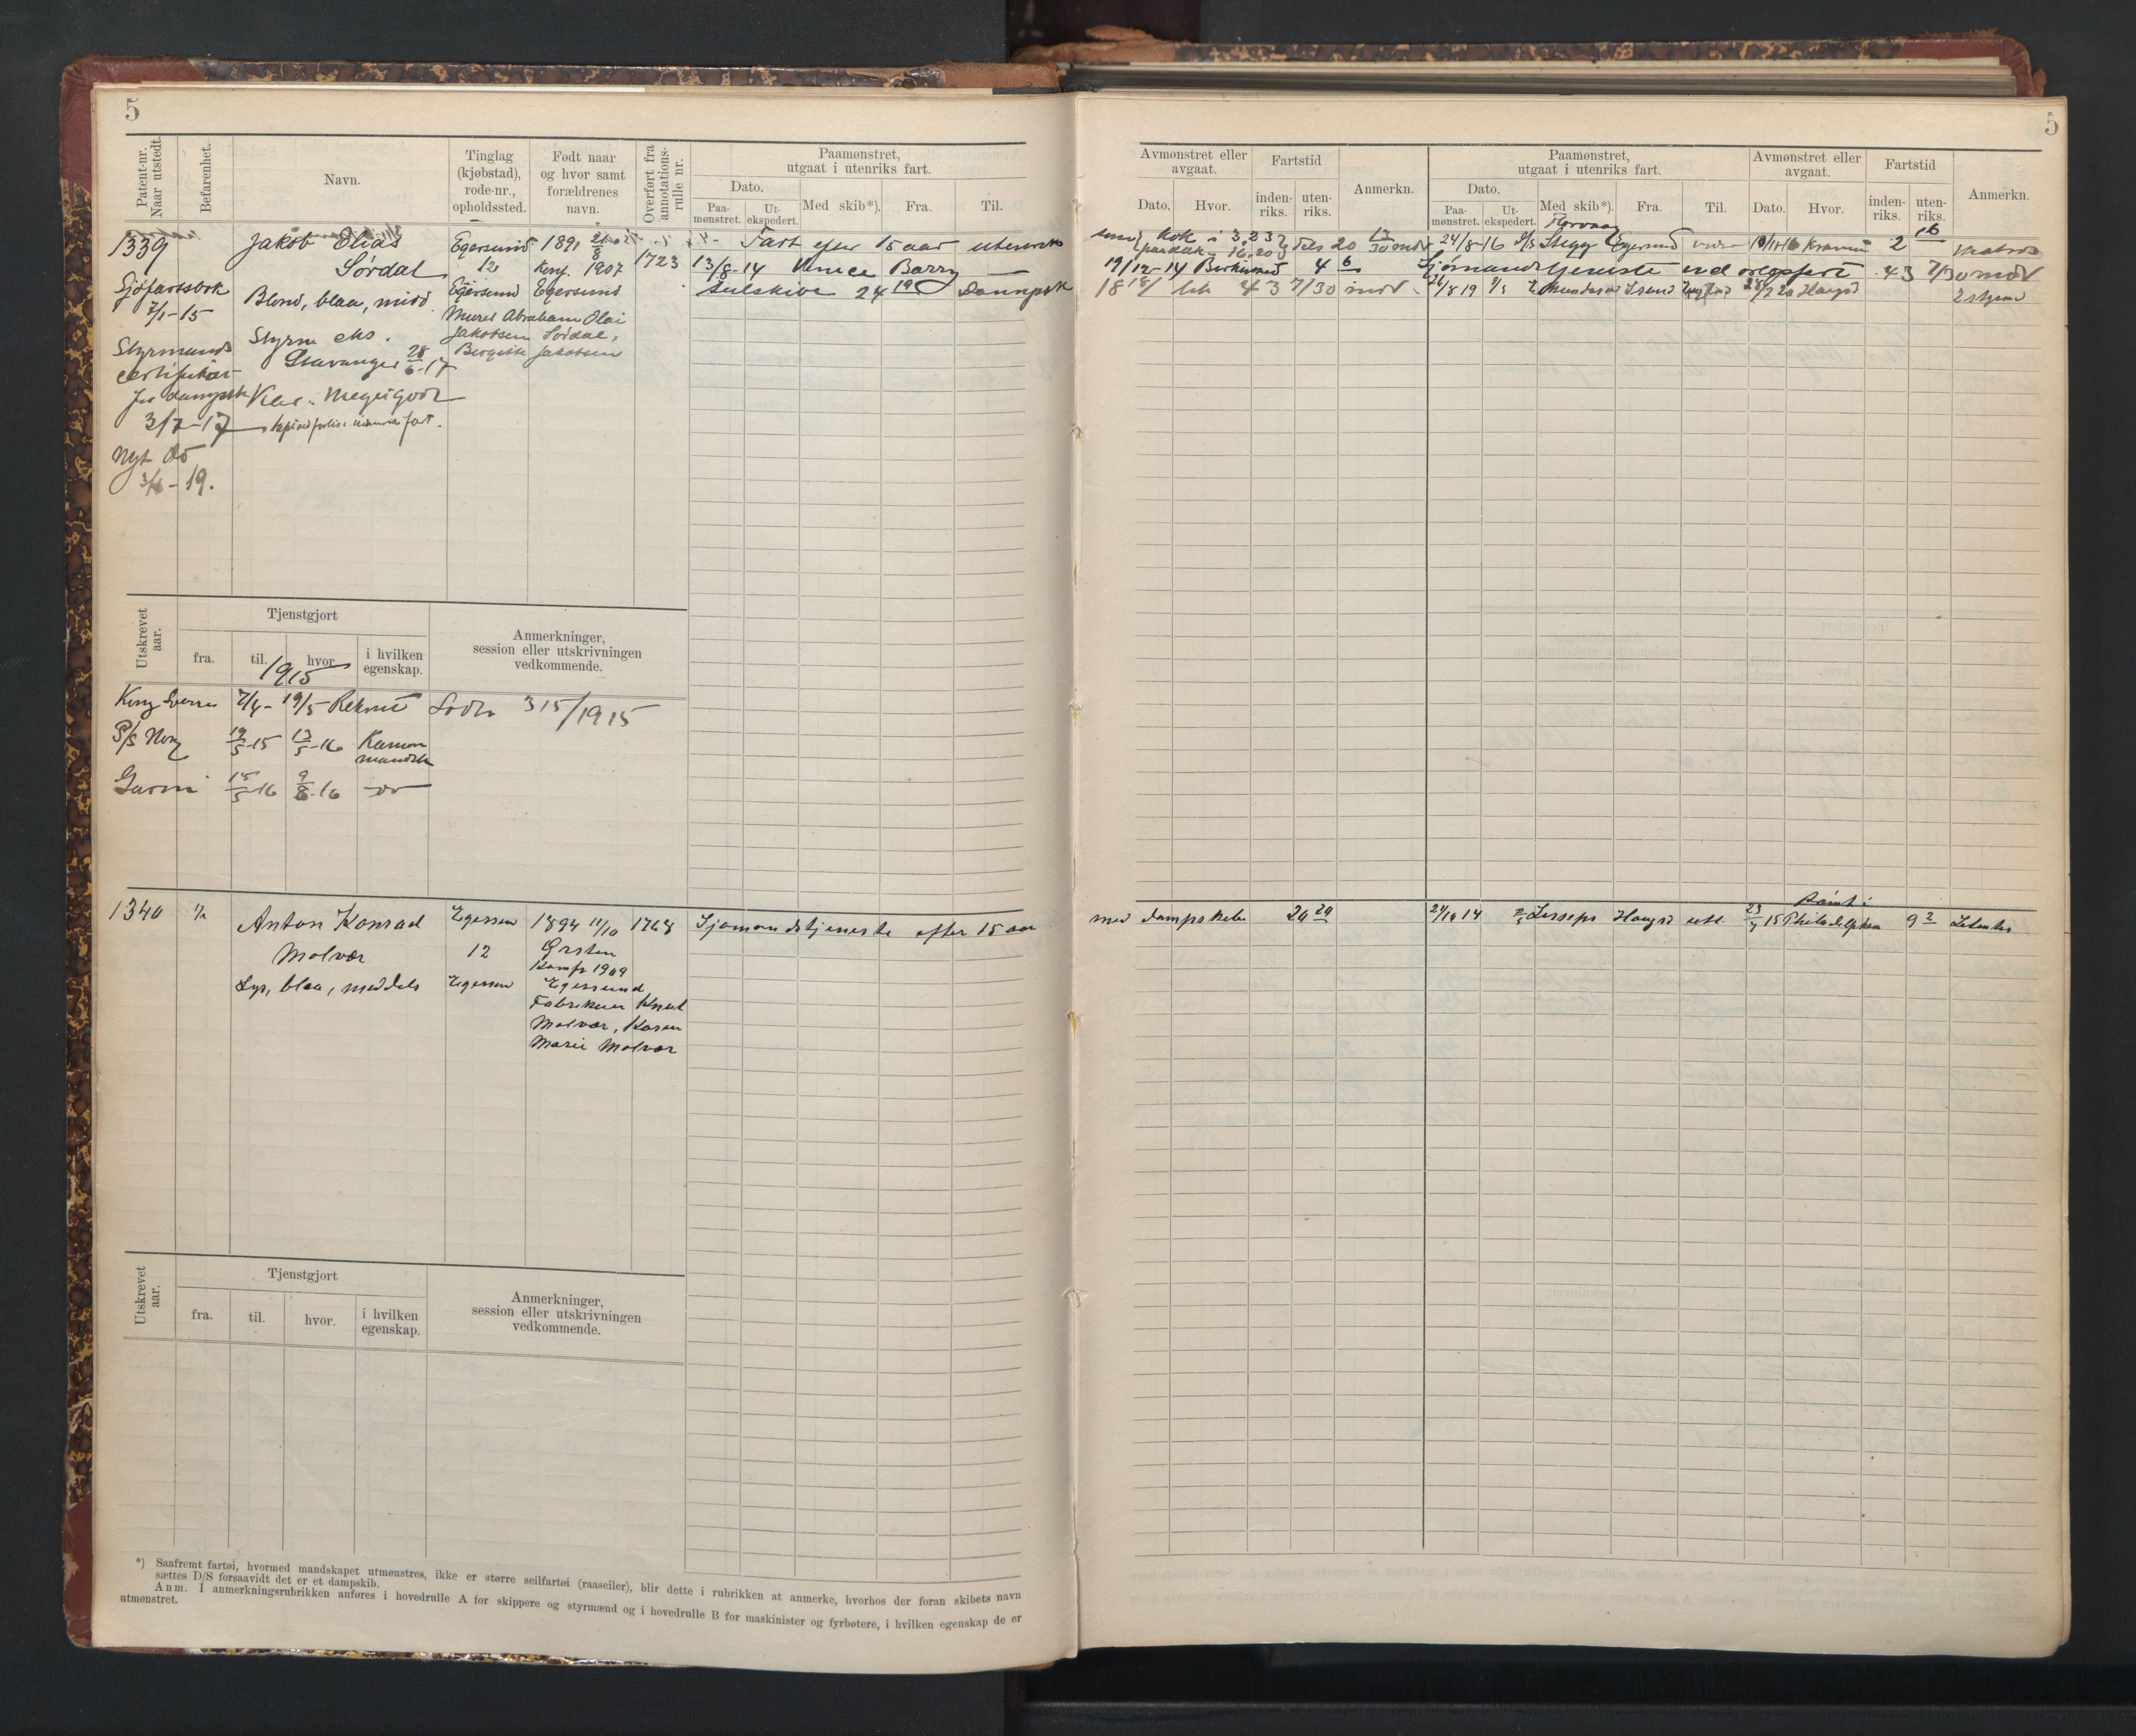 5
Patent-nr. Naar utstedt.
Befarenhet.
Navn.
Tinglag (kjøbstad), rode-nr., opholdssted.
Født naar og hvor samt forældrenes navn.
Overført fra annotations-rulle nr.
Paamønstret, utgaat i utenriks fart.
Dato.
Paa-mønstret.
Ut-ekspedert.
Med skib*).
Fra.
Til.
1339
Jakob Elias
Sørdal
Egersund
12
1891 21/8
Konf. 1907
1723
Fart efter 15 aar utenriks
13/8-14 Venice Barry —
seilskibe 24 19 Dampsk
Sjøfartsbok
7/1-15
Blond, blaa, midd
Egersund Egersund
Murer Abraham Olai
Jakobsen Sørdal,
Bergitte Jakobsen
Styrmands
certifikat
for dampsk
3/7-17
Styrm eks.
Stavanger 28/6-17
Kar: Meget godt
Nyt do
3/6-19.
Utskrevet aar.
Tjenstgjort
fra.
til.
hvor.
i hvilken egenskap.
Anmerkninger, session eller utskrivningen vedkommende.
1915
Kong Sverre 7/4- 19/5 Rekrut Lodtr 315/1915
P/S Norg 19/5-15 13/5-16 Kanon
mandsk
Garm 15/5-16 9/8-16 do
1340
Anton Konrad
Molvær
Lys, blaa, middels
Egersun
12
Egersun
1894 11/10
Ørsten
Konf. 1909
Egersund
Fabrikeier Knut
Molvær, Karen
Marie Molvær
1768
Sjømandstjeneste efter 15 aar
Utskrevet aar.
Tjenstgjort
fra.
til.
hvor.
i hvilken egenskap.
Anmerkninger, session eller utskrivningen vedkommende.
*) Saafremt fartøi, hvormed mandskapet utmønstres, ikke er større seilfartøi (raaseiler), blir dette i rubrikken at anmerke, hvorhos der foran skibets navn
sættes D/S forsaavidt det er et dampskib.
Anm. I anmerkningsrubrikken anføres i hovedrulle A for skippere og styrmænd og i hovedrulle B for maskinister og fyrbøtere, i hvilken egenskap de er
utmønstret.
5
Avmønstret eller avgaat.
Dato.
Hvor.
Fartstid
inden-riks.
uten-riks.
Anmerkn.
Paamønstret, utgaat i utenriks fart.
Dato.
Paa-mønstret.
Ut-ekspedert.
Med skib*).
Fra.
Til.
Avmønstret eller avgaat.
Dato.
Hvor.
Fartstid
inden-riks.
uten-riks.
Anmerkn.
som kok i 3,23
16,20 Tils 20 13/30 mdr
24/8-16 Stegg Egersund 2 16 Matros
19/12-14 Birkenhead 4 6
Sjømandstjeneste ved opløpsfart 43 7/30 mdr
43 7/30 mdr.
8 19 Haugsd 2 styrmd
med dampskibe 24 29
21/10 14 Lesseps Haugsd 23/7 15 Philadelphia 9 2
Rømt i